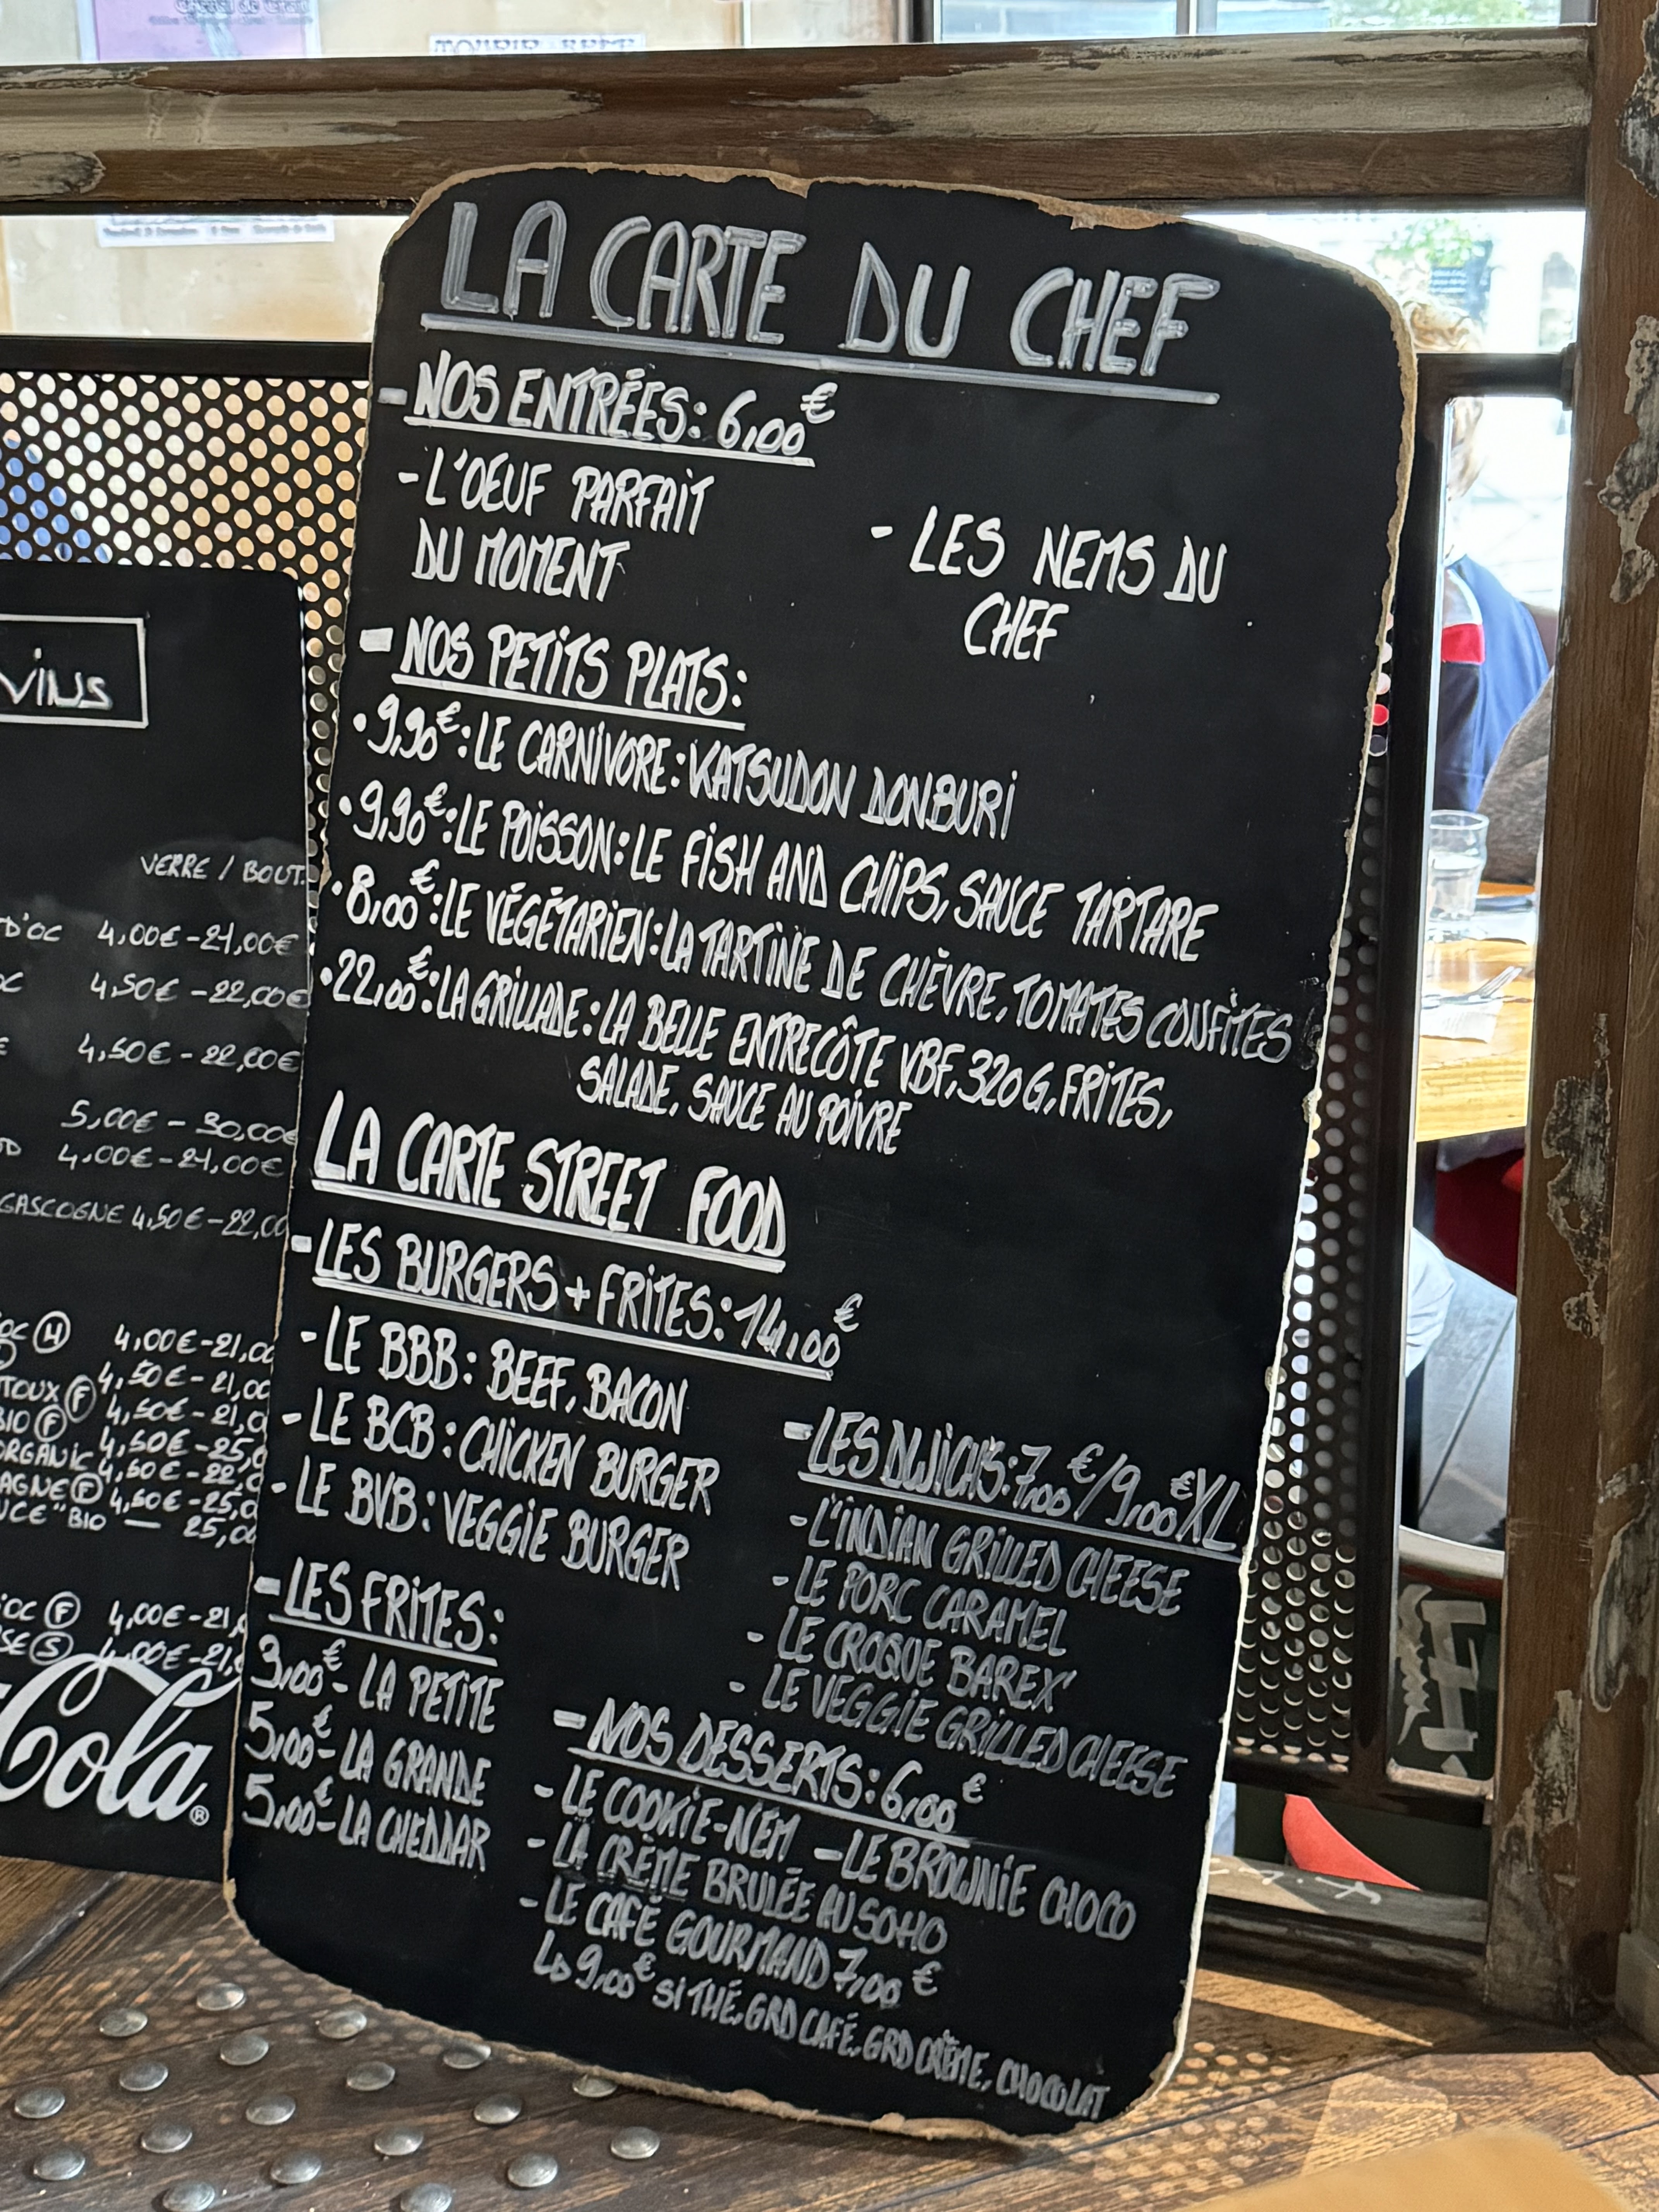 LA CARTE DU CHEF
- NOS ENTRÉES: 6,00€
- L'OEUF PARFAIT
DU MOMENT
- LES NEMS DU
CHEF
- NOS PETITS PLATS:
• 9,90€: LE CARNIVORE: KATSUDON DONBURI
• 9,90€: LE POISSON: LE FISH AND CHIPS, SAUCE TARTARE
• 8,00€: LE VÉGÉTARIEN: LA TARTINE DE CHÈVRE, TOMATES CONFITES
• 22,00€: LA GRILLADE: LA BELLE ENTRECÔTE VBF, 320G, FRITES,
SALADE, SAUCE AU POIVRE
LA CARTE STREET FOOD
- LES BURGERS + FRITES: 14,00€
- LE BBB: BEEF, BACON
- LE BCB: CHICKEN BURGER
- LE BVB: VEGGIE BURGER
- LES DWICHS: 7,00€/9,00€ XL
- L'INDIAN GRILLED CHEESE
- LE PORC CARAMEL
- LE CROQUE BAREX'
- LE VEGGIE GRILLED CHEESE
- LES FRITES:
3,00€ - LA PETITE
5,00€ - LA GRANDE
5,00€ - LA CHEDDAR
- NOS DESSERTS: 6,00€
- LE COOKIE-NEM - LE BROWNIE CHOCO
- LA CRÈME BRULÉE AU SOHO
- LE CAFÉ GOURMAND 7,00€
↳ 9,00€ SI THÉ, GRD CAFÉ, GRD CRÈME, CHOCOLAT
VINS
VERRE / BOUT.
D'OC 4,00€ - 21,00€
4,50€ - 22,00€
4,50€ - 22,00€
5,00€ - 30,00€
4,00€ - 21,00€
GASCOGNE 4,50€ - 22,00
4,00€ - 21,00
4,50€ - 21,00
BIO (F) 4,50€ - 21,0
ORGANIC 4,50€ - 25,0
(F) 4,50€ - 25,0
"BIO" — 25,00
OC (F) 4,00€ - 21,
(S) 4,00€ - 21,
Cola®